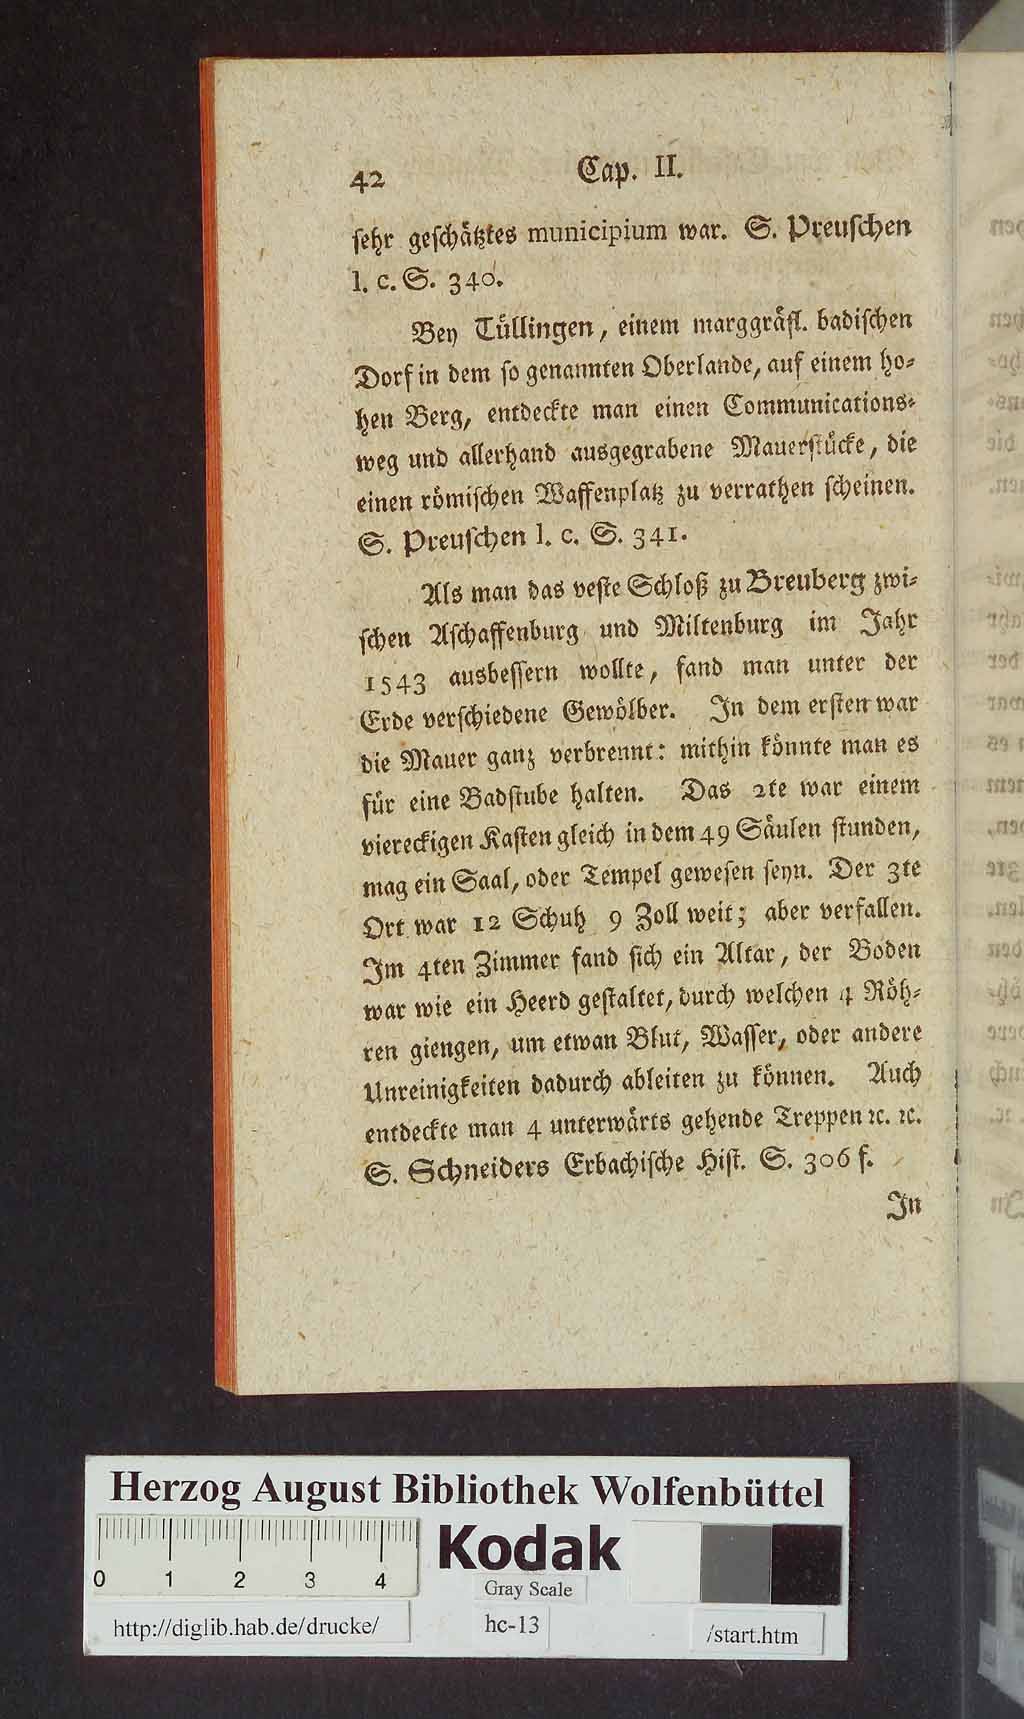 42 Cap. II.
sehr geschätztes municipium war. S. Preuschen
l. c. S. 340.
Bey Tüllingen, einem marggräfl. badischen
Dorf in dem so genannten Oberlande, auf einem ho-
hen Berg, entdeckte man einen Communications-
weg und allerhand ausgegrabene Mauerstücke, die
einen römischen Waffenplatz zu verrathen scheinen.
S. Preuschen l. c. S. 341.
Als man das veste Schloß zu Breuberg zwi-
schen Aschaffenburg und Miltenburg im Jahr
1543 ausbessern wollte, fand man unter der
Erde verschiedene Gewölber. In dem ersten war
die Mauer ganz verbrennt: mithin könnte man es
für eine Badstube halten. Das 2te war einem
viereckigen Kasten gleich in dem 49 Säulen stunden,
mag ein Saal, oder Tempel gewesen seyn. Der 3te
Ort war 12 Schuh 9 Zoll weit; aber verfallen.
Im 4ten Zimmer fand sich ein Altar, der Boden
war wie ein Heerd gestaltet, durch welchen 4 Röh-
ren giengen, um etwan Blut, Wasser, oder andere
Unreinigkeiten dadurch ableiten zu können. Auch
entdeckte man 4 unterwärts gehende Treppen ꝛc. ꝛc.
S. Schneiders Erbachische Hist. S. 306 f.
In
Herzog August Bibliothek Wolfenbüttel
0 1 2 3 4
Kodak
Gray Scale
http://diglib.hab.de/drucke/
hc-13
/start.htm